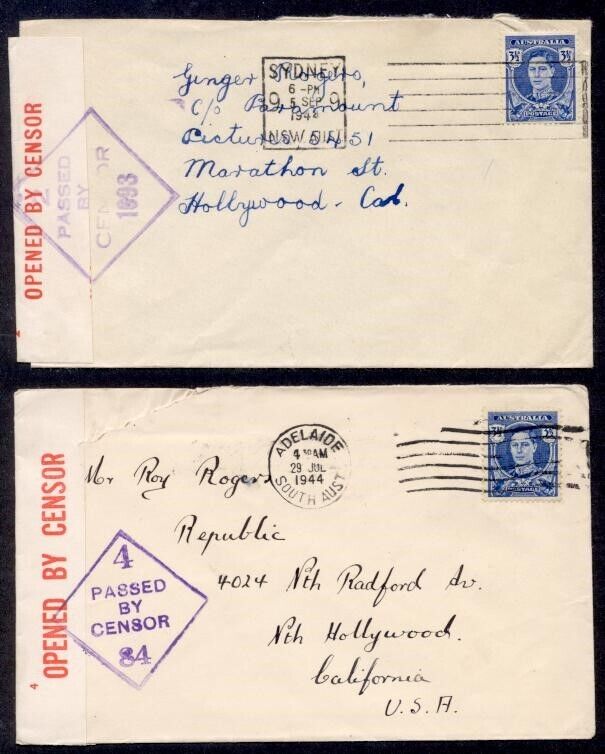 OPENED BY CENSOR
2
PASSED
BY
CENSOR
1693
SYDNEY
6 - PM
9 5 SEP 9
N.S.W. AUST
AUSTRALIA
3½
POSTAGE
Ginger Rogers,
c/o Paramount
Pictures 5451
Marathon St.
Hollywood - Cal.
OPENED BY CENSOR
4
4
PASSED
BY
CENSOR
84
ADELAIDE
4 30 AM
29 JUL
1944
SOUTH AUST
AUSTRALIA
3½ 3½
POSTAGE
Mr Roy Rogers
Republic
4024 Nth Radford Av.
Nth Hollywood.
California
U.S.A.